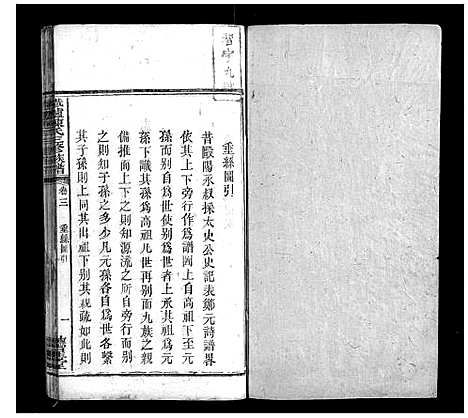 垂絲圖引
昔歐陽永叔採太史公史記表鄭元詩譜畧
依其上下旁行作爲譜圖上自高祖下至元
孫而別自爲世使別爲世者上承其祖爲元
孫下識其孫爲高祖凡世再別而九族之親
備推而上下之則知源流之所自旁行而別
之則知子孫之多少凡元孫各爲世各繫
其子孫則上同其出祖下別其親疏如此則
陳氏三修族譜
卷三
垂絲圖引
一